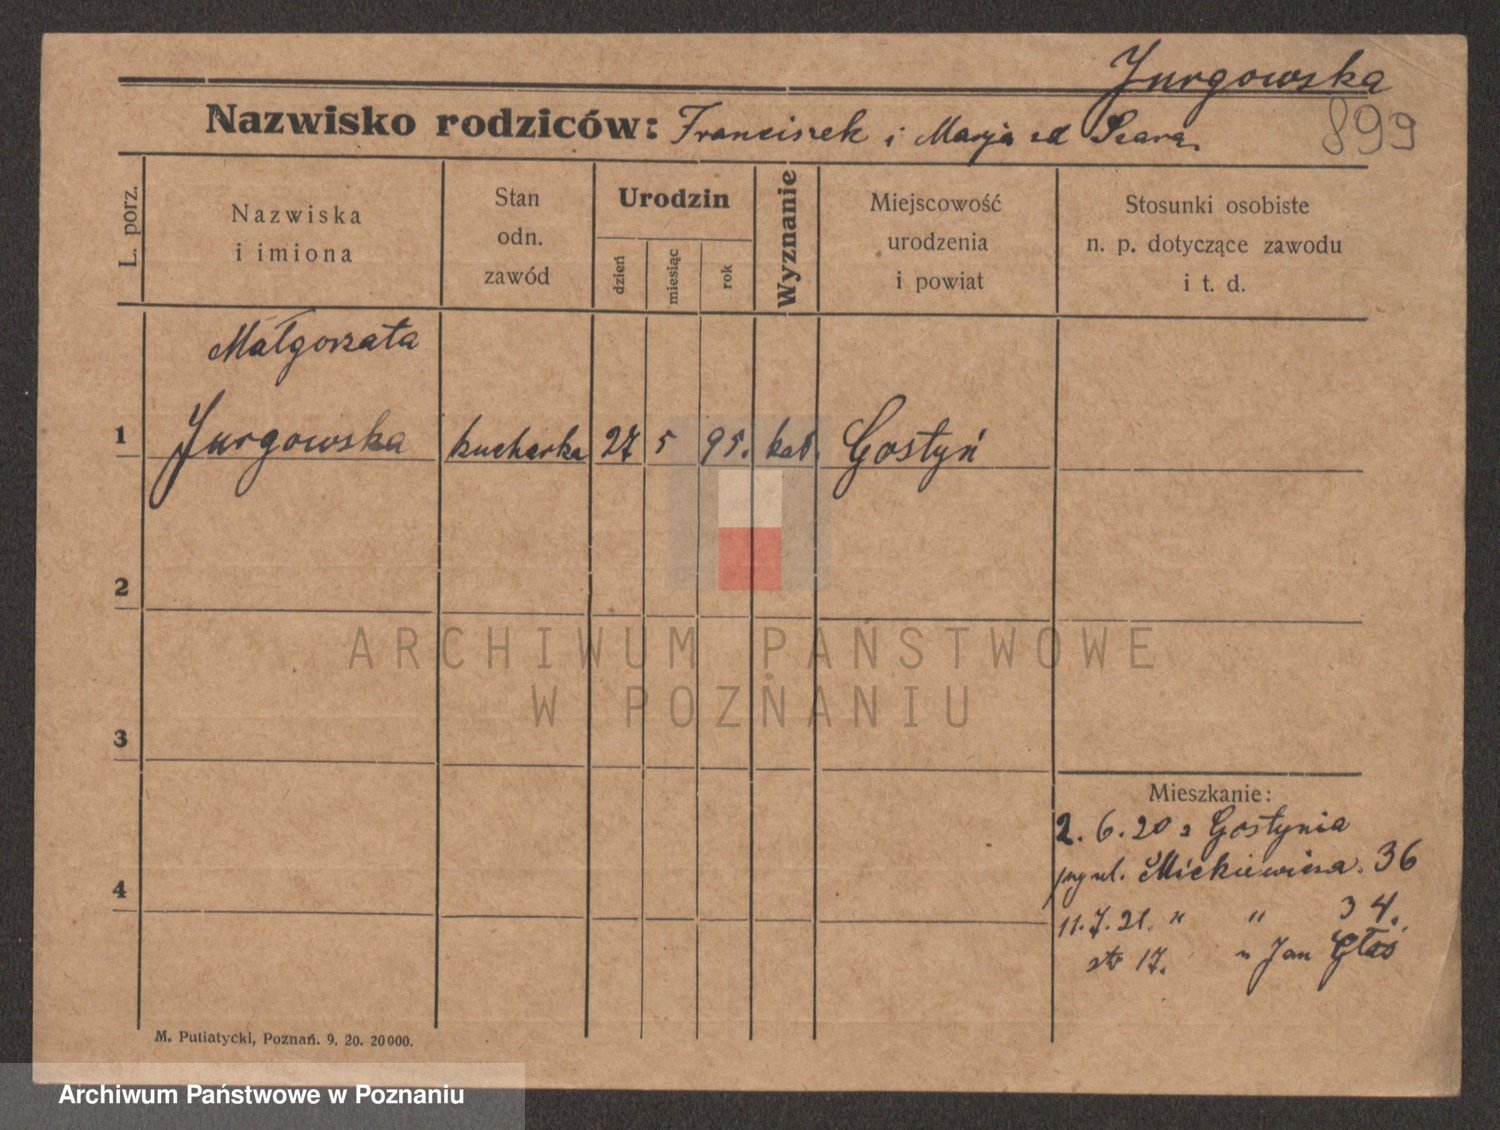 Jurgowska
Nazwisko rodziców: Franciszek i Marja zd
899
L. porz.
Nazwiska
i imiona
Stan
odn.
zawód
Urodzin
dzień
miesiąc
rok
Wyznanie
Miejscowość
urodzenia
i powiat
Stosunki osobiste
n. p. dotyczące zawodu
i t. d.
Małgorzata
1 Jurgowska kucharka 27 5 95. kat. Gostyń
2
3
4
Mieszkanie:
2. 6. 20 z Gostynia
ul. Mickiewicza. 36
11. 7. 21. " " 34.
17. Jan Głos
M. Putiatycki, Poznań. 9. 20. 20000.
ARCHIWUM PAŃSTWOWE
W POZNANIU
Archiwum Państwowe w Poznaniu